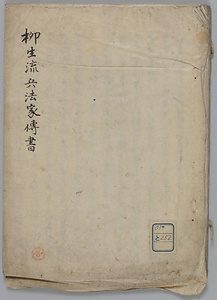 柳生流兵法家傳書